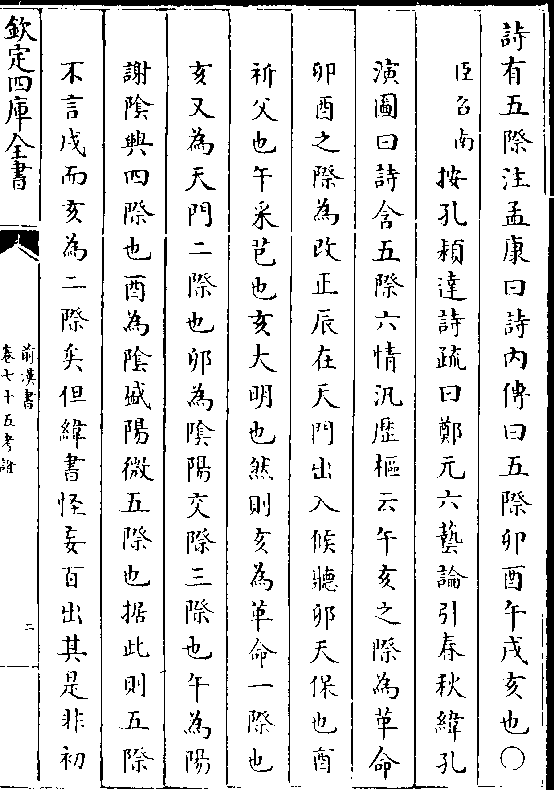 詩有五際注孟康曰詩内傳曰五際卯酉午戌亥也〇
臣召南按孔穎達詩疏曰鄭元六藝論引春秋緯孔
演圖曰詩含五際六情汎歴樞云午亥之際為革命
卯酉之際為改正辰在天門出入候聽卯天保也酉
祈父也午采芑也亥大明也然則亥為革命一際也
亥又為天門二際也卯為陰陽交際三際也午為陽
謝隂興四際也酉為隂盛陽微五際也据此則五際
不言戌而亥為二際矣但緯書怪妄百出其是非初
欽定四庫全書
前漢書
卷七十五考證
二